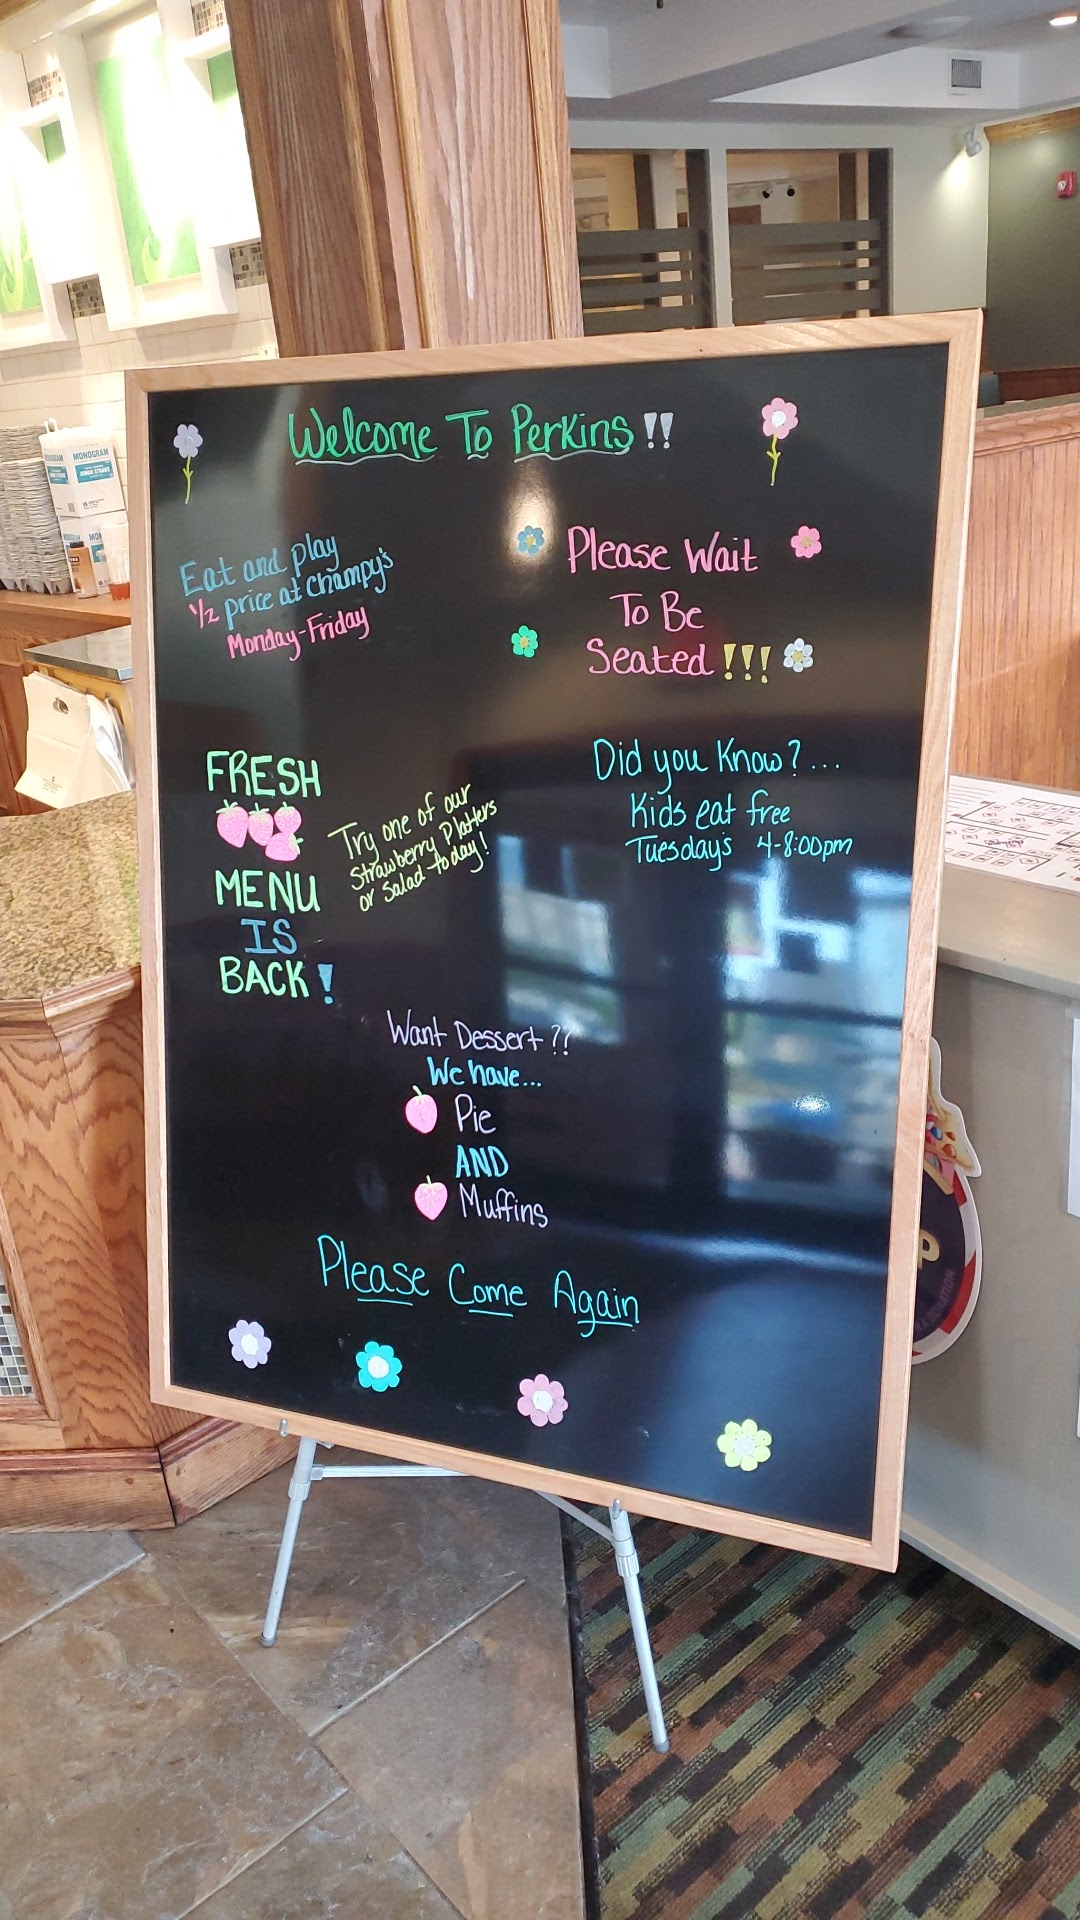 Welcome To Perkins!!
Eat and play
1/2 price at Champy's
Monday-Friday
Please Wait
To Be
Seated!!!
FRESH
MENU
IS
BACK!
Try one of our
Strawberry Platters
or Salad today!
Did you Know?...
Kids eat free
Tuesday's 4-8:00pm
Want Dessert??
We have...
Pie
AND
Muffins
Please Come Again
MONOGRAM
MONOGRAM